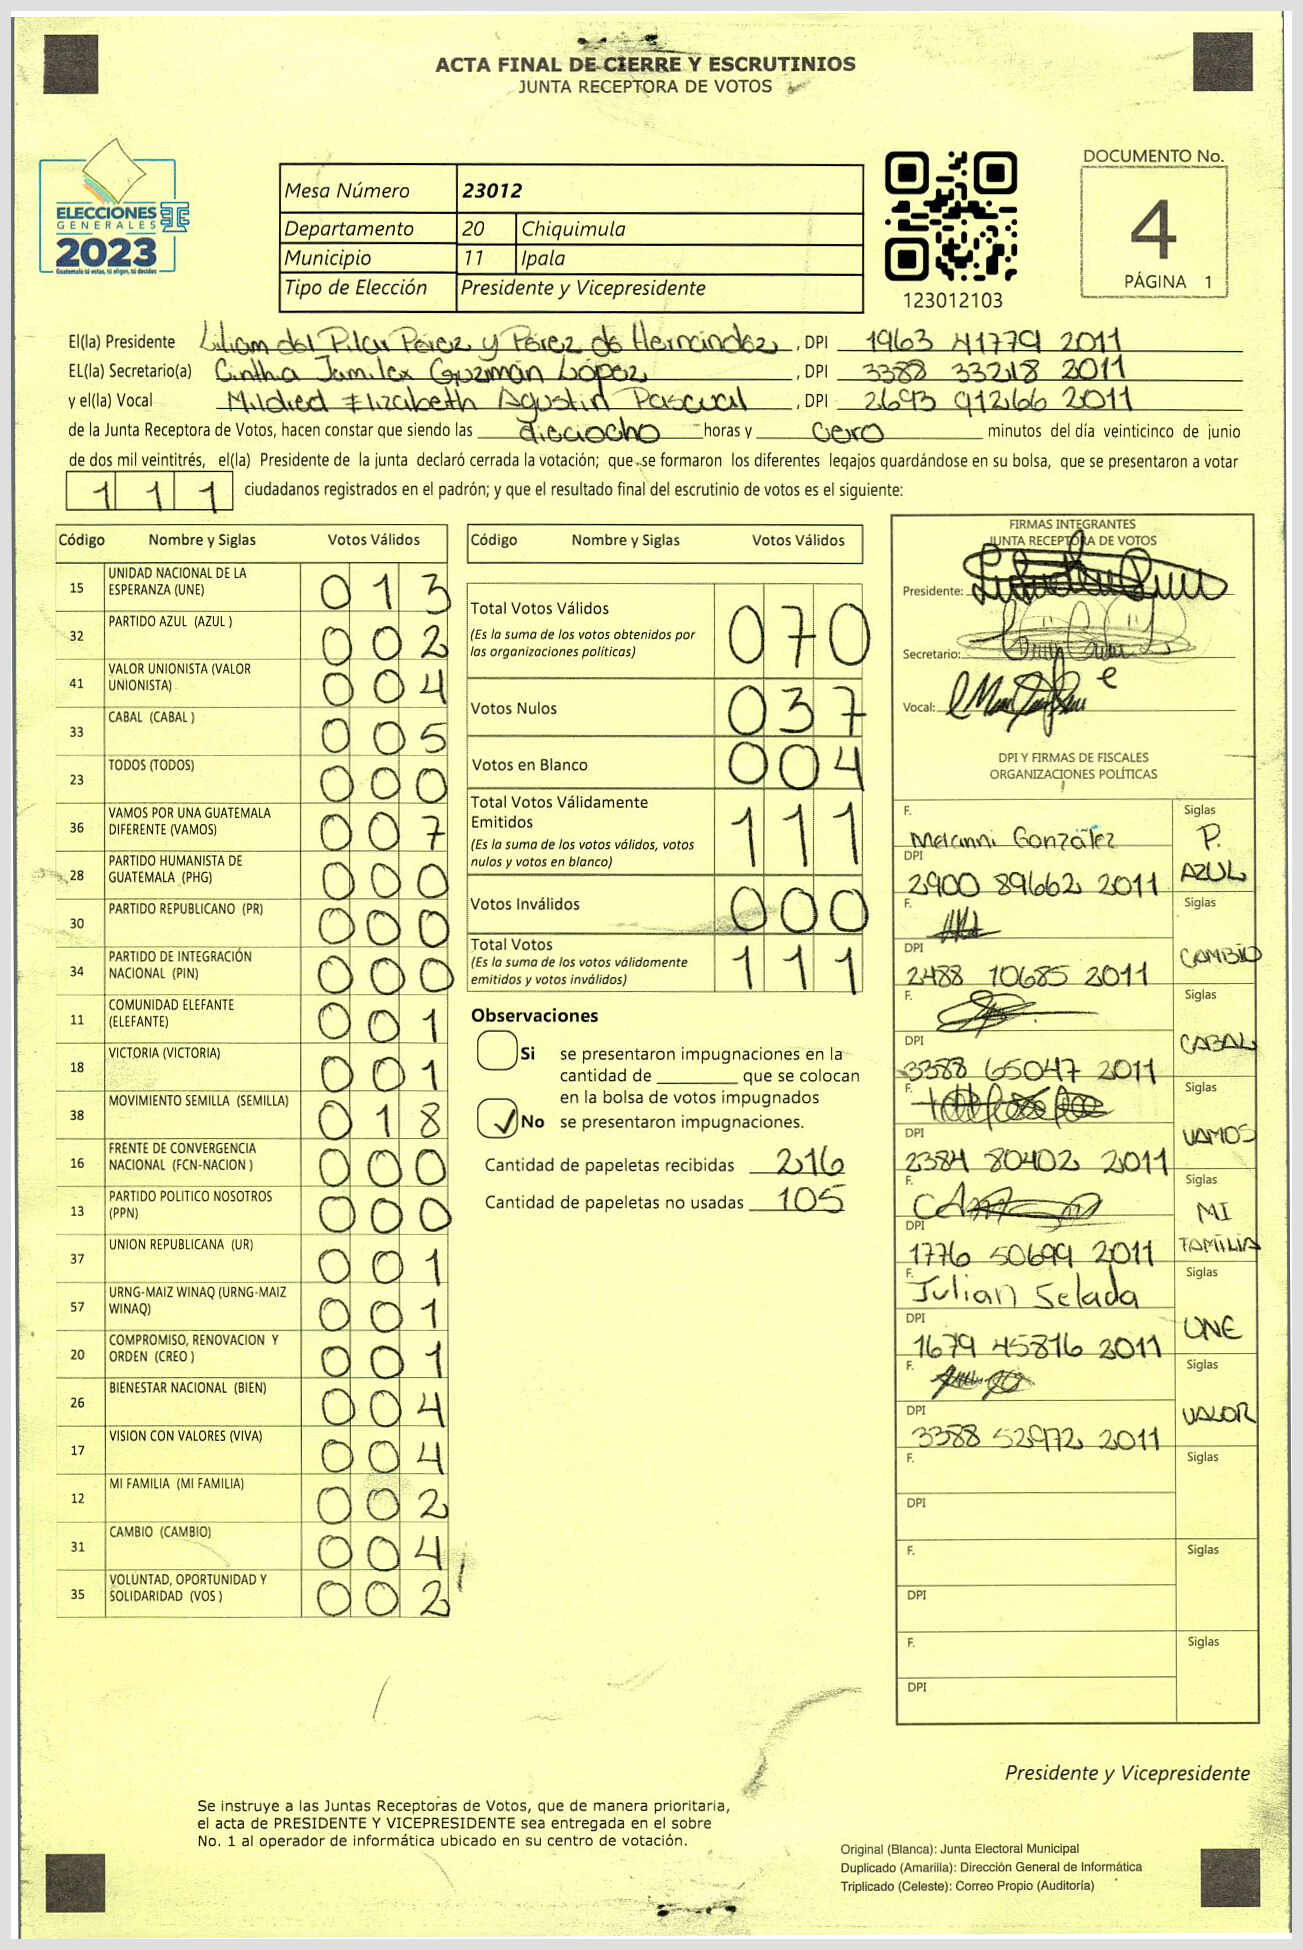 ACTA FINAL DE CIERRE Y ESCRUTINIOS
JUNTA RECEPTORA DE VOTOS
ELECCIONES
GENERALES
2023
Guatemala tú votas, tú eliges, tú decides
Mesa Número 23012
Departamento 20 Chiquimula
Municipio 11 Ipala
Tipo de Elección Presidente y Vicepresidente
123012103
DOCUMENTO No.
4
PÁGINA 1
El(la) Presidente Liliam del Pilar Pérez y Pérez de Hernández, DPI 1963 41779 2011
EL(la) Secretario(a) Cinthia Jamilex Guzmán López, DPI 3388 33218 2011
y el(la) Vocal Mildred Elizabeth Agustin Pascual, DPI 2693 91266 2011
de la Junta Receptora de Votos, hacen constar que siendo las dieciocho horas y cero minutos del día veinticinco de junio
de dos mil veintitrés, el(la) Presidente de la junta declaró cerrada la votación; que se formaron los diferentes legajos guardándose en su bolsa, que se presentaron a votar
111 ciudadanos registrados en el padrón; y que el resultado final del escrutinio de votos es el siguiente:
Código Nombre y Siglas Votos Válidos
15 UNIDAD NACIONAL DE LA ESPERANZA (UNE) 013
32 PARTIDO AZUL (AZUL ) 002
41 VALOR UNIONISTA (VALOR UNIONISTA) 004
33 CABAL (CABAL ) 005
23 TODOS (TODOS) 000
36 VAMOS POR UNA GUATEMALA DIFERENTE (VAMOS) 007
28 PARTIDO HUMANISTA DE GUATEMALA (PHG) 000
30 PARTIDO REPUBLICANO (PR) 000
34 PARTIDO DE INTEGRACIÓN NACIONAL (PIN) 000
11 COMUNIDAD ELEFANTE (ELEFANTE) 001
18 VICTORIA (VICTORIA) 001
38 MOVIMIENTO SEMILLA (SEMILLA) 018
16 FRENTE DE CONVERGENCIA NACIONAL (FCN-NACION ) 000
13 PARTIDO POLITICO NOSOTROS (PPN) 000
37 UNION REPUBLICANA (UR) 001
57 URNG-MAIZ WINAQ (URNG-MAIZ WINAQ) 001
20 COMPROMISO, RENOVACION Y ORDEN (CREO ) 001
26 BIENESTAR NACIONAL (BIEN) 004
17 VISION CON VALORES (VIVA) 004
12 MI FAMILIA (MI FAMILIA) 002
31 CAMBIO (CAMBIO) 004
35 VOLUNTAD, OPORTUNIDAD Y SOLIDARIDAD (VOS ) 002
Código Nombre y Siglas Votos Válidos
Total Votos Válidos 070
(Es la suma de los votos obtenidos por
las organizaciones políticas)
Votos Nulos 037
Votos en Blanco 004
Total Votos Válidamente
Emitidos 111
(Es la suma de los votos válidos, votos
nulos y votos en blanco)
Votos Inválidos 000
Total Votos 111
(Es la suma de los votos válidamente
emitidos y votos inválidos)
Observaciones
Si se presentaron impugnaciones en la
cantidad de ________ que se colocan
en la bolsa de votos impugnados
✓ No se presentaron impugnaciones.
Cantidad de papeletas recibidas 216
Cantidad de papeletas no usadas 105
FIRMAS INTEGRANTES
JUNTA RECEPTORA DE VOTOS
Presidente:
Secretario:
Vocal:
DPI Y FIRMAS DE FISCALES
ORGANIZACIONES POLÍTICAS
F. Melanni González Siglas P. AZUL
DPI 2900 89662 2011
F. Siglas CAMBIO
DPI 2488 10685 2011
F. Siglas CABAL
DPI 3388 65047 2011
F. Siglas VAMOS
DPI 2384 80402 2011
F. Siglas MI FAMILIA
DPI 1776 50699 2011
F. Julian Selada Siglas UNE
DPI 1679 45816 2011
F. Siglas VALOR
DPI 3388 52972 2011
F. Siglas
DPI
F. Siglas
DPI
F. Siglas
DPI
Presidente y Vicepresidente
Se instruye a las Juntas Receptoras de Votos, que de manera prioritaria,
el acta de PRESIDENTE Y VICEPRESIDENTE sea entregada en el sobre
No. 1 al operador de informática ubicado en su centro de votación.
Original (Blanca): Junta Electoral Municipal
Duplicado (Amarilla): Dirección General de Informática
Triplicado (Celeste): Correo Propio (Auditoría)